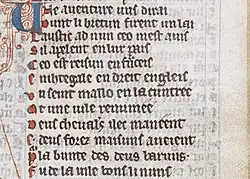 ne aventure vus dirai
Dunt li bretun firent un lai
Laustic ad nun ceo mest auis
Si lapelent en lur pais
Ceo est reisun en franceis
E nihtegale en dreit engleis
En seint mallo en la cuntree
Ot une vile renumee
Deus cheualers ilec maneient
E deus forez maisuns aueient
Pur la bunte des deus baruns
Fu de la vile bons li nuns